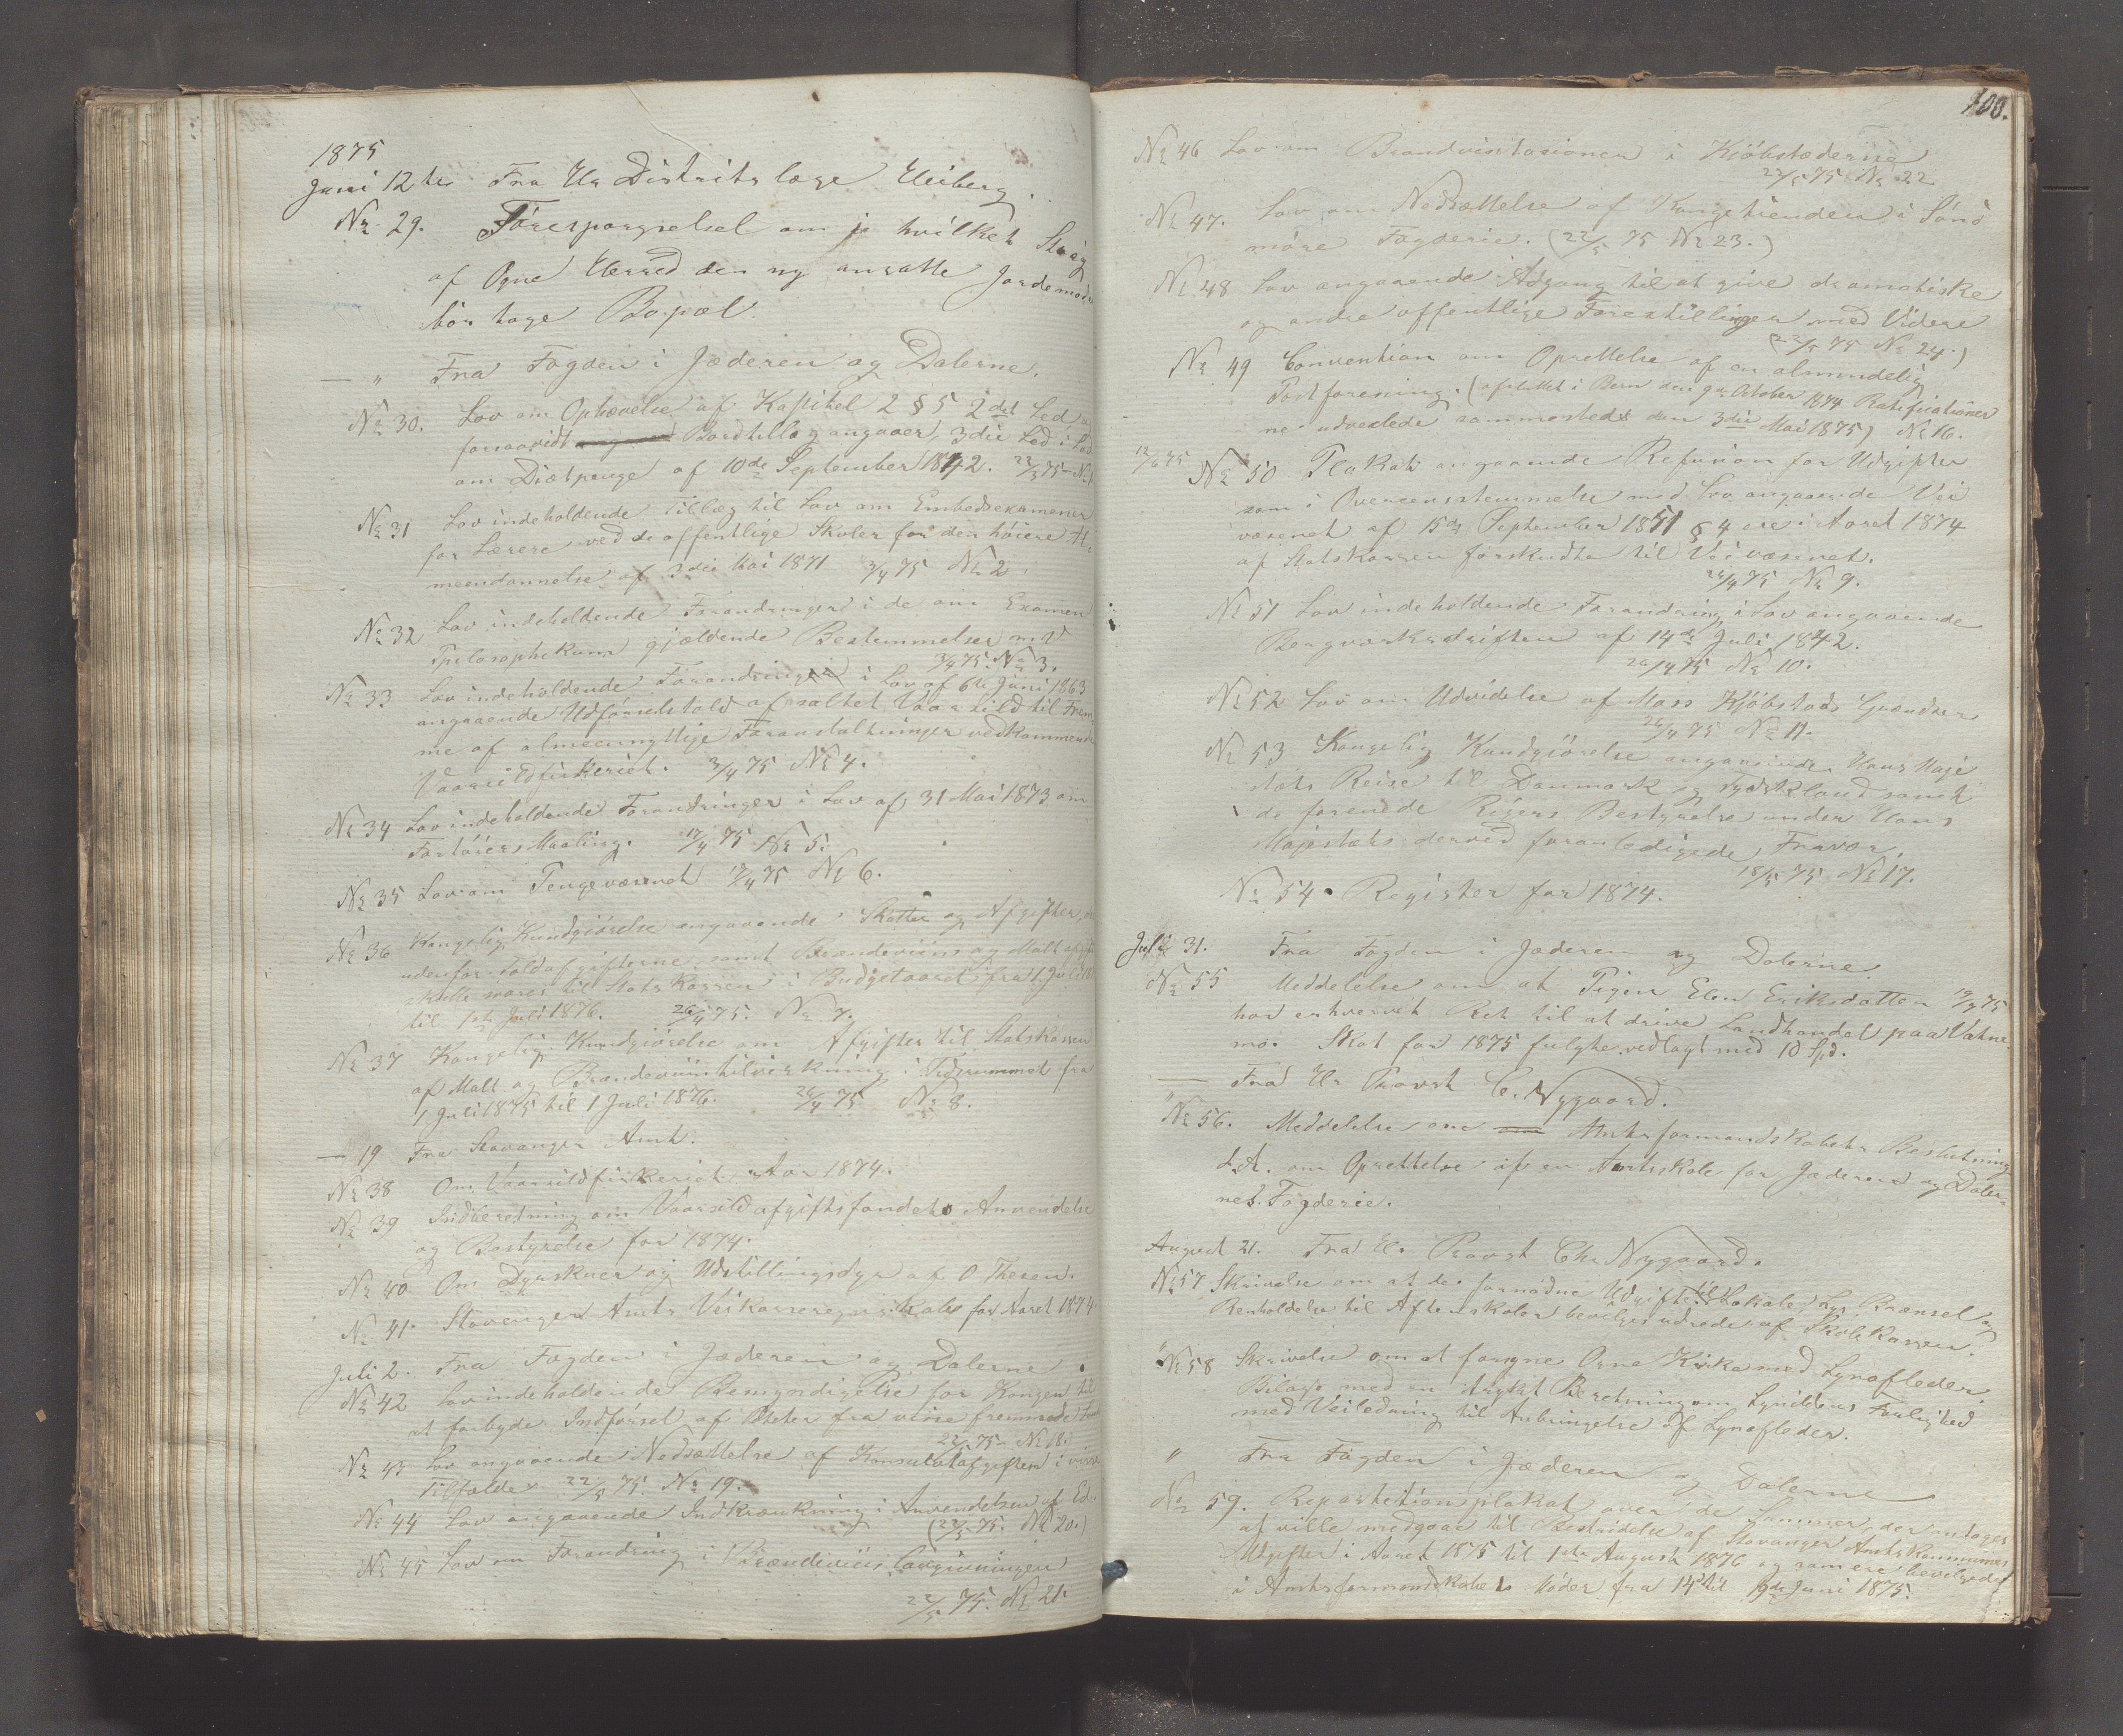 1875
Juni 12te Fra Hr Distriktslæge Heiberg.
No 29. Forespørgselsel om i hvilket Strøg
af Ogne Herred den ny ansatte Jordemoder
bør tage Bopæl.
— " Fra Fogden i Jæderen og Dalerne.
No 30. Lov om Ophævelse af Kapitel 2 § 5 2det Led
forsaavidt Bordtillæg angaaer, 3die Led i Lov
om Diætpenge af 10de September 1842. 22/5 75 No
No 31 Lov indeholdende Tillæg til Lov om Embedsexamener
for Lærere ved de offentlige Skoler for den høiere Al-
meendannelse af 3die Mai 1871 3/4 75 No 2.
No 32 Lov indeholdende Forandringer i de om Examen
Philosophikum gjældende Bestemmelser m. V
3/4 75. No 3.
No 33 Lov indeholdende Forandringer i Lov af 6te Juni 1863
angaaende Udførselstold af saltet Vaarsild til Frem
me af almeennyttige Foranstaltninger vedkommende
Vaarsildfiskeriet. 3/4 75 No 4.
No 34 Lov indeholdende Forandringer i Lov af 31 Mai 1873 om
Fartøiers Maaling. 17/4 75 No 5.
No 35 Lov om Pengevæsenet 17/4 75 No 6.
No 36 Kongelig Kundgjørelse angaaende Skatter og Afgifter,
udenfor Toldafgifterne, samt Brændeviins og Maltafgift
skulle svares til Statskassen i Budgetaaret fra 1 Juli
til 1ste Juli 1876. 26/4 75. No 7.
No 37 Kongelig Kundgjørelse om Afgifter til Statskassen
af Malt og Brændeviinstilvirkning i Tidsrummet fra
1 Juli 1875 til 1 Juli 1876. 26/4 75 No 8.
— 19 Fra Stavanger Amt.
No 38 Om Vaarsildfiskeriet Aar 1874.
No 39 Indberetning om Vaarsildafgiftsfondets Anvendelse
og Bestyrelse for 1874.
No 40 Om Dyrskuer og Udstillingsdyr af O Thesen.
No 41. Stavanger Amts Veikasseregnskab for Aaret 1874
Juli 2. Fra Fogden i Jæderen og Dalerne
No 42 Lov indeholdende Bemyndigelse for Kongen til
at forbyde Indførsel af Poteter fra visse fremmede
22/5 75 No 18.
No 43 Lov angaaende Nedsættelse af Konsulatafgiften i visse
Tilfælde 22/5 75. No 19.
No 44 Lov angaaende Indskrænkning i Anvendelsen af Ed.
(22/5 75. No 20.)
No 45 Lov om Forandring i Brændeviinslovgivningen
22/5 75. No 21.
100.
No 46 Lov om Brandvistasionen i Kjøbstæderne
22/5 75 No 22
No 47. Lov om Nedsættelse af Kongetienden i Sønd
møre Fogderie. (22/5 75 No 23.)
No 48 Lov angaaende Adgang til at give dramatiske
og andre offentlige Forestillinger med Videre
(22/5 75 No 24.)
No 49 Convention om Oprettelse af en almindelig
Postforening. (afsluttet i Bern den 9de October 1874 Ratifications
ne udvexlede sammesteds den 3die Mai 1875) No 16.
12/6 75 No 50 Plakat angaaende Refusion for Udgifter
som i Overeensstemmelse med Lov angaaende Vei
væsenet af 15de September 1851 § 4 ere i Aaret 1874
af Statskassen forskudte til Veivæsenet.
26/4 75 No 9.
No 51 Lov indeholdende Forandring i Lov angaaende
Bergverksdriften af 14de Juli 1842.
26/4 75 No 10.
No 52 Lov om Udvidelse af Moss Kjøbstads Grændser
26/4 75 No 11.
No 53 Kongelig Kundgjørelse angaaende Hans Maje
stæts Reise til Danmark og Tydskland samt
de forenede Rigers Bestyrelse under Hans
Majestæts derved foranledigede Fravær.
18/5 75 No 17.
No 54. Register for 1874.
Juli 31. Fra Fogden i Jæderen og Dalerne.
No 55 Meddelelse om at Pigen Elen Eriksdatter 19/7 75
har erhvervet Ret til at drive Landhandel paa Vatne
mo. Skat for 1875 fulgte vedlagt med 10 Spd.
— Fra Hr Provst C. Nygaard.
" No 56. Meddelelse om Amtsformandskabets Beslutning
d. A. om Oprettelse af en Amtsskole for Jæderens og Daler-
nes Fogderie.
August 21. Fra Hr Provst Chr Nygaard.
No 57 Skrivelse om at de fornødne Udgifter til Lokale, Lys Brænsel og
Renholdelse til Aftenskoler bevilges udrede af Skolekassen.
" No 58 Skrivelse om at forsyne Ogne Kirke med Lynafleder.
Bilagt med en trykt Beretning om Lynildens Farlighed
med Veiledning til Anbringelse af Lynafleder.
" Fra Fogden i Jæderen og Dalerne
No 59. Repartetionsplakat over de Summer, der antages
at ville medgaae til Bestridelse af Stavanger Amtskommunes
Udgifter i Aaret 1875 til 1ste August 1876 og som ere bevilgede
i Amtsformandskabets Møder fra 14de til 19de Juni 1875.